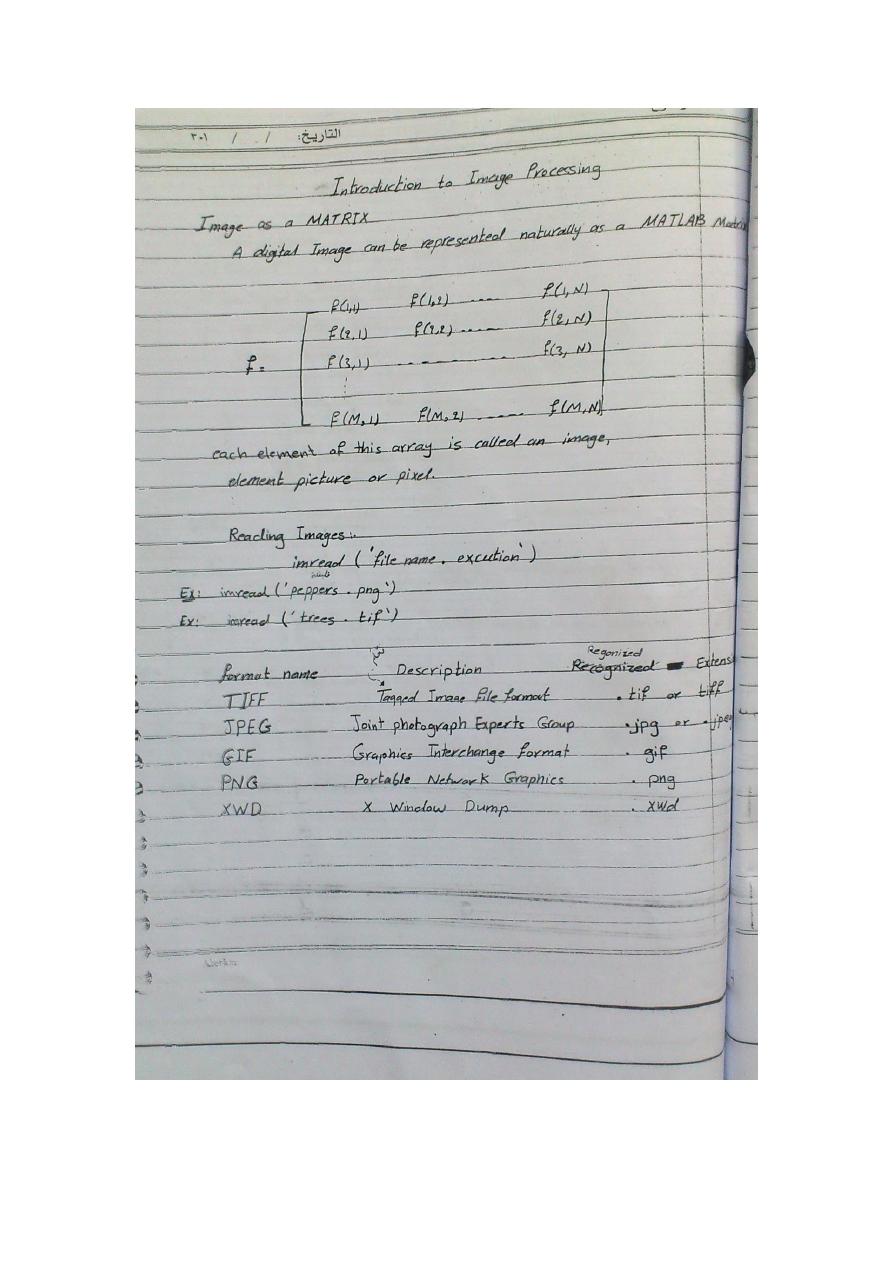 التاريخ: / / ٢٠١
Introduction to Image Processing
Image as a MATRIX
A digital Image can be represented naturally as a MATLAB Matrix
f(1,1) f(1,2) ..... f(1,N)
f(2,1) f(2,2) ..... f(2,N)
f = f(3,1) ............... f(3, N)
⋮
f(M,1) f(M,2) ...... f(M,N)
each element of this array is called an image,
element picture or pixel.
Reading Images:.
imread ('file name . excution')
Ex: imread ('peppers . png')
Ex: imread ('trees . tif')
Regonized
format name Description Recognized Extens
TIFF Tagged Image file format . tif or tiff
JPEG Joint photograph Experts Group .jpg or .jpeg
GIF Graphics Interchange format . gif
PNG Portable Network Graphics . png
XWD X Window Dump . xwd